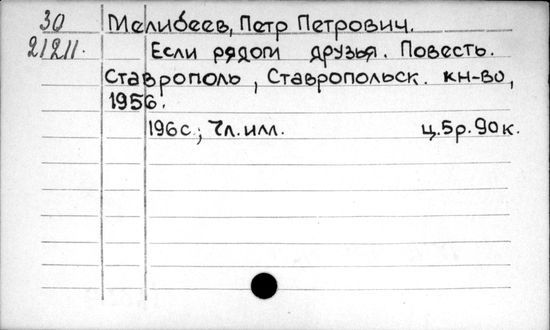 30 Мелибеев, Петр Петрович.
21211. Если рядом друзья. Повесть.
Ставрополь, Ставропольск. кн-во,
1956.
196с.; 7л.илл. ц.5р.90к.